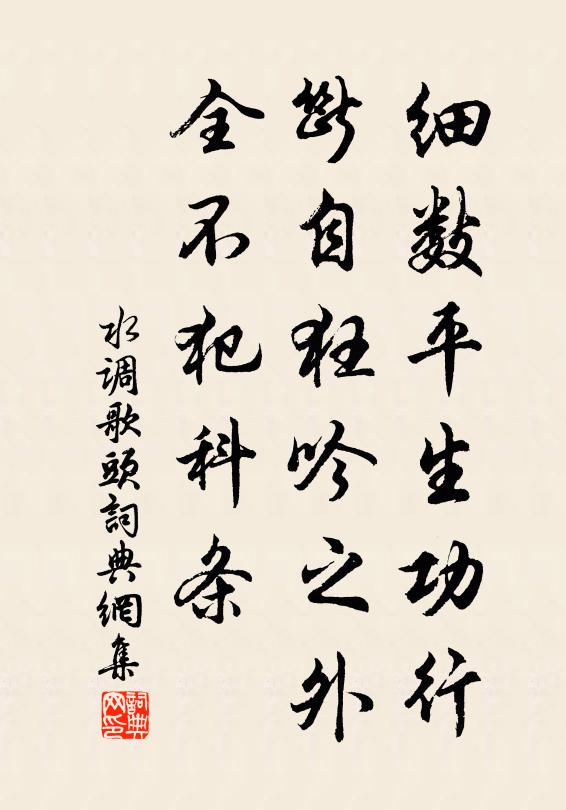 细数平生功行
斷自狂吟之外
全不犯科条
水调歌頭詞典網集
詞典
网印